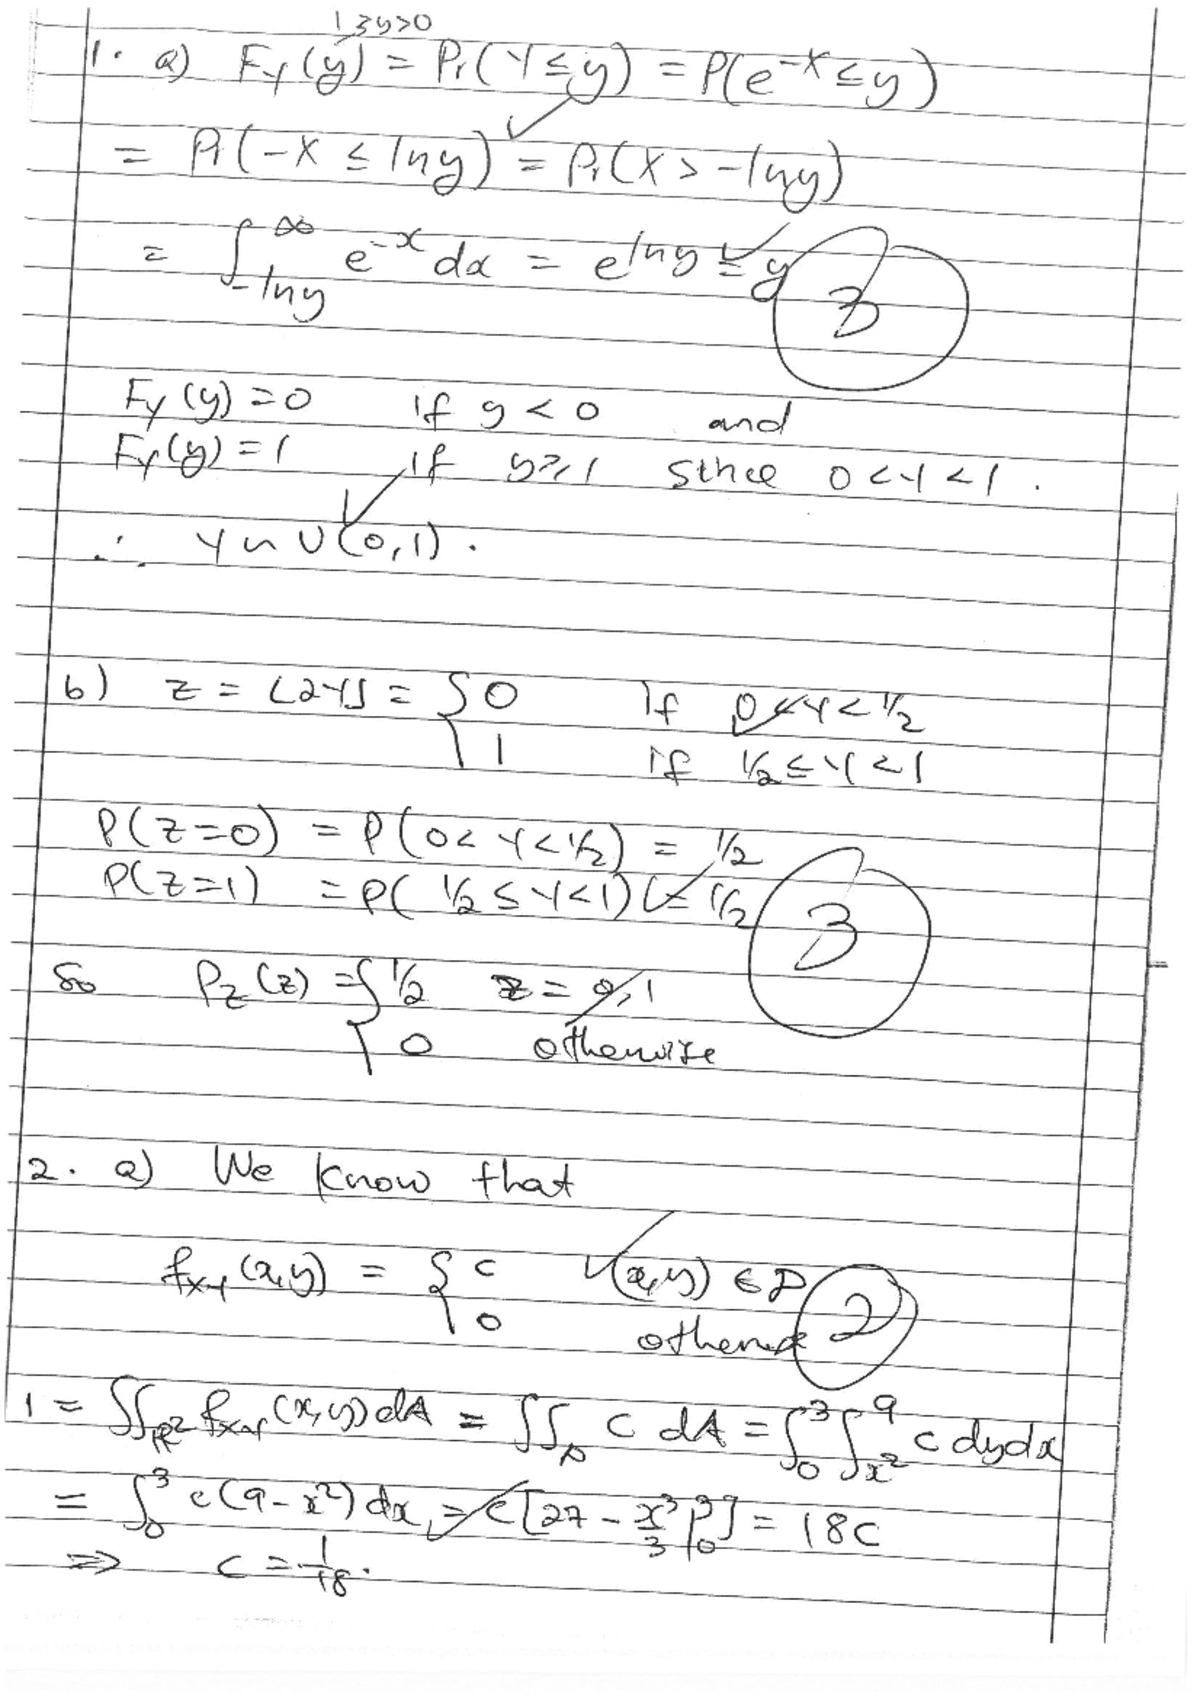 1 ≥ y > 0
1. a) F_Y(y) = Pr(Y ≤ y) = P(e^{-X} ≤ y)
= Pr(-X ≤ ln y) = Pr(X > -ln y)
= ∫_{-ln y}^{∞} e^{-x} dx = e^{ln y} = y
3
F_Y(y) = 0 if y < 0 and
F_Y(y) = 1 if y ≥ 1 since 0 < Y < 1.
∴ Y ~ U(0,1).
b) Z = ⌊2Y⌋ = { 0 if 0 < Y < 1/2
1 if 1/2 ≤ Y < 1
P(Z=0) = P(0 < Y < 1/2) = 1/2
P(Z=1) = P(1/2 ≤ Y < 1) = 1/2
3
So P_Z(z) = { 1/2 z = 0,1
0 otherwise
2. a) We know that
f_{XY}(x,y) = { c (x,y) ∈ D
0 otherwise
2
1 = ∬_{ℝ²} f_{XY}(x,y) dA = ∬_D c dA = ∫_0^3 ∫_{x²}^9 c dy dx
= ∫_0^3 c(9-x²) dx = c[27 - x³/3 |_0^3] = 18c
⇒ c = 1/18.